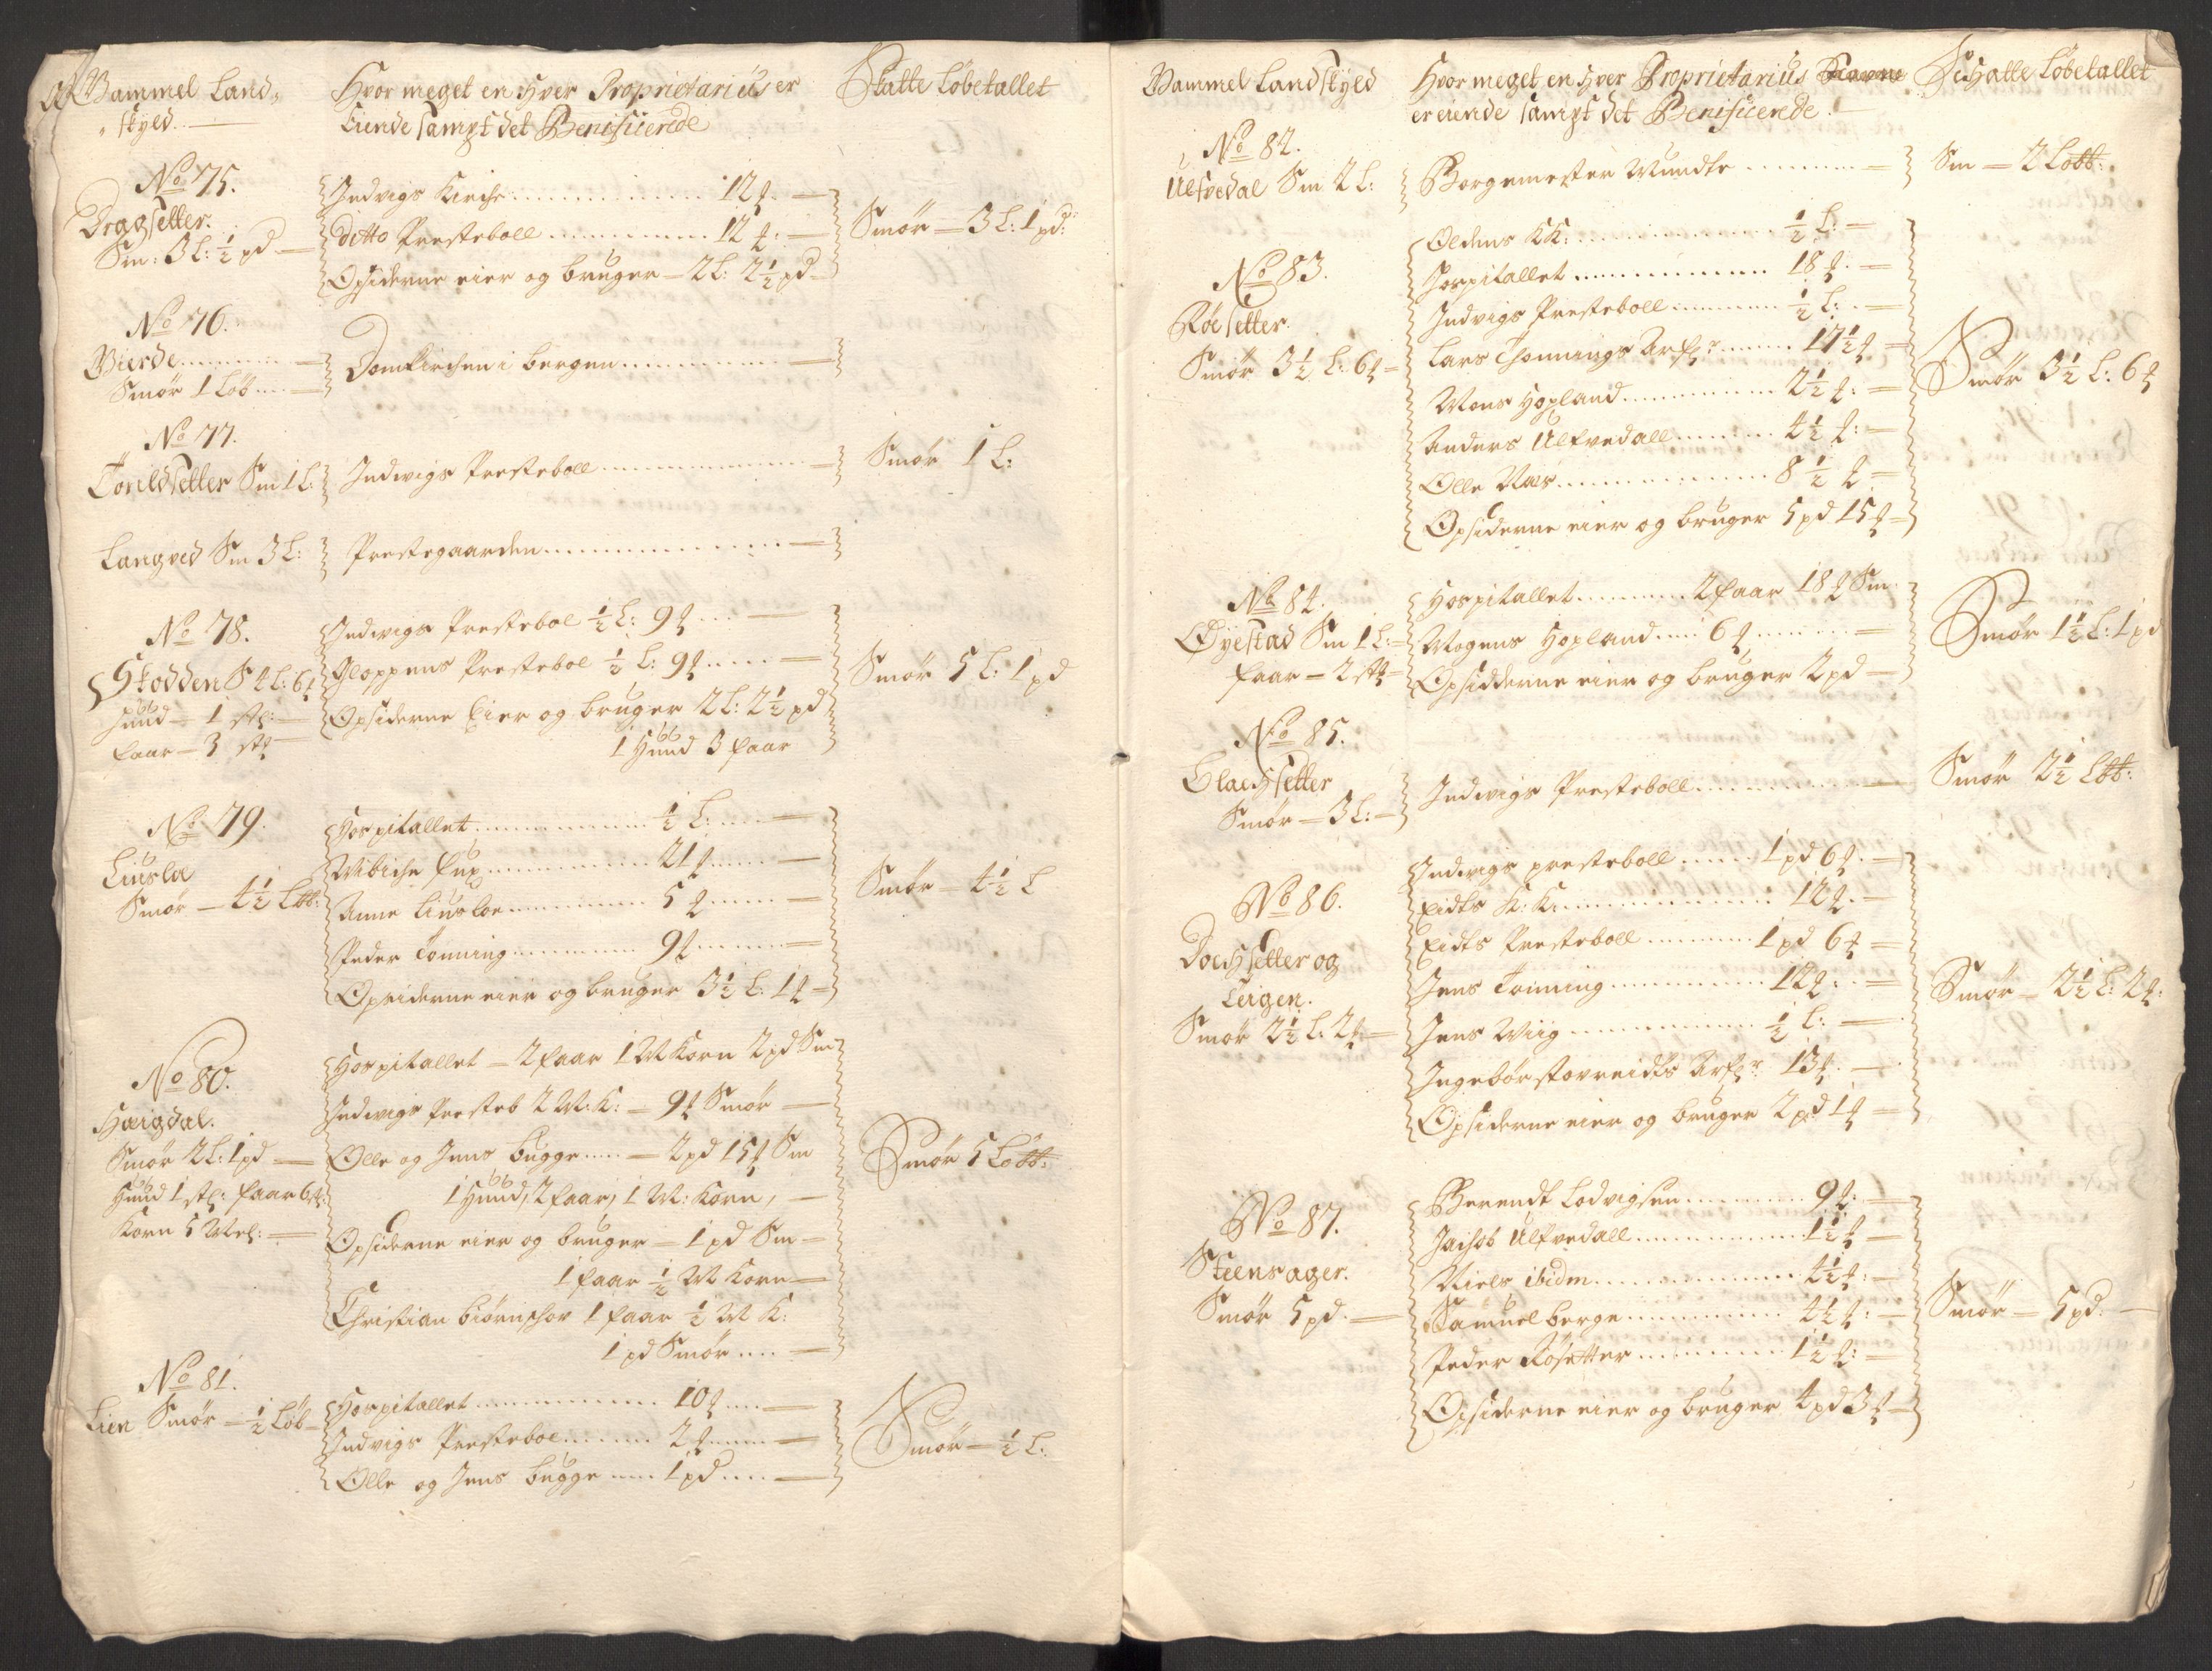 Gammel Land-
skyld
Hvor meget en Hver Proprietarius er
Eiende sampt det Benificerede
Skatte Løbetallet
No 75.
Dragsetter.
Sm: 3 L: ½ pd
Indvigs Kirche 12 ℔
ditto Presteboll 12 ℔
Opsiderne eier og bruger 2 L: 2½ pd
Smør 3 L: 1 pd:
No 76.
Gierde
Smør 1 Løb
Domkirchen i bergen
No 77.
Torildsetter Sm 1 L:
Indvigs Presteboll
Smør 1 L:
Langved Sm 3 L:
Prestegaarden
No 78.
Stodden S 4 L: 6 ℔
Huud 1 st:
faar 3 st
Indvigs Presteboe ½ L: 9 ℔
Gloppens Presteboe ½ L: 9 ℔
Opsiderne Eier og bruger 2 L: 2½ pd
1 Huud 3 faar
Smør 5 L: 1 pd
No 79.
Liusloe
Smør 4½ Løb:
Hospitallet ½ L:
Wibiche 21 ℔
Anne Liusloe 5 ℔
Peder Tonning 9 ℔
Opsiderne eier og bruger 3½ L: 1 ℔
Smør 4½ L
No 80.
Haugdal.
Smør 2 L: 1 pd
Huud 1 st: faar 6 st:
Korn 5 Mel:
Hospitallet 2 faar 1 M Korn 2 pd Sm
Indvigs Presteb 2 M: K: 9 ℔ Smør
Olle og Jens bugge 2 pd 15 ℔ Sm
1 Huud, 2 faar, 1 M: Korn,
Opsiderne eier og bruger 1 pd Sm
1 faar ½ M Korn
Christian biørnschor 1 faar ½ M K:
1 pd Smør
Smør 5 Løbb:
No 81.
Lien Smør ½ Løb
Hospitallet 10 ℔
Indvigs Presteboe 2 ℔
Olle og Jens bugge 1 pd
Smør ½ L:
Gammel Landskyld
Hvor meget en Hver Proprietarius
er eiende sampt det Benificerede.
Schatte Løbetallet
No 82.
Ulfvedal Sm 2 L:
Borgemester Wundte
Sm 2 Løbb:
No 83.
Røesetter.
Smør 3½ L: 6 ℔
Oldens KK: ½ L:
Hospitallet 18 ℔
Indvigs Presteboll ½ L:
Lars Thonnings Arfr 17½ ℔
Mons Hopland 2½ ℔:
Anders Ulfvedall 4½ ℔:
Olle Naes 8½ ℔
Opsiderne eier og bruger 5 pd 15 ℔
Smør 3½ L: 6 ℔
No 84.
Øyestad Sm 1 L:
faar 2 st
Hospitallet 2 faar 18 ℔ Sm
Mogens Hopland 6 ℔
Opsidderne eier og bruger 2 pd
Smør 1½ L: 1 pd
No 85.
Blachsetter
Smør 3 L:
Indvigs Presteboll
Smør 2½ Løb:
No 86.
Dochsetter og
Leigen.
Smør 2½ L: 2 ℔
Indvigs presteboll 1 pd 6 ℔
Eidts K: K: 12 ℔
Eidts Presteboll 1 pd 6 ℔
Jens Tonning 12 ℔
Jens Wiig ½ L:
Ingebør stavreidts Arfr. 13 ℔
Opsiderne eier og bruger 2 pd 1 ℔
Smør 2½ L: 2 ℔:
No 87.
Steensager.
Smør 5 pd.
Berendt Lodvigsen 9 ℔:
Jachob Ulfvedall 1½ ℔
Niels ibidm 4½ ℔:
Samuel berge 4½ ℔:
Peder Røsetter 1½ ℔:
Opsiderne eier og bruger 4 pd 3 ℔
Smør 5 pd.